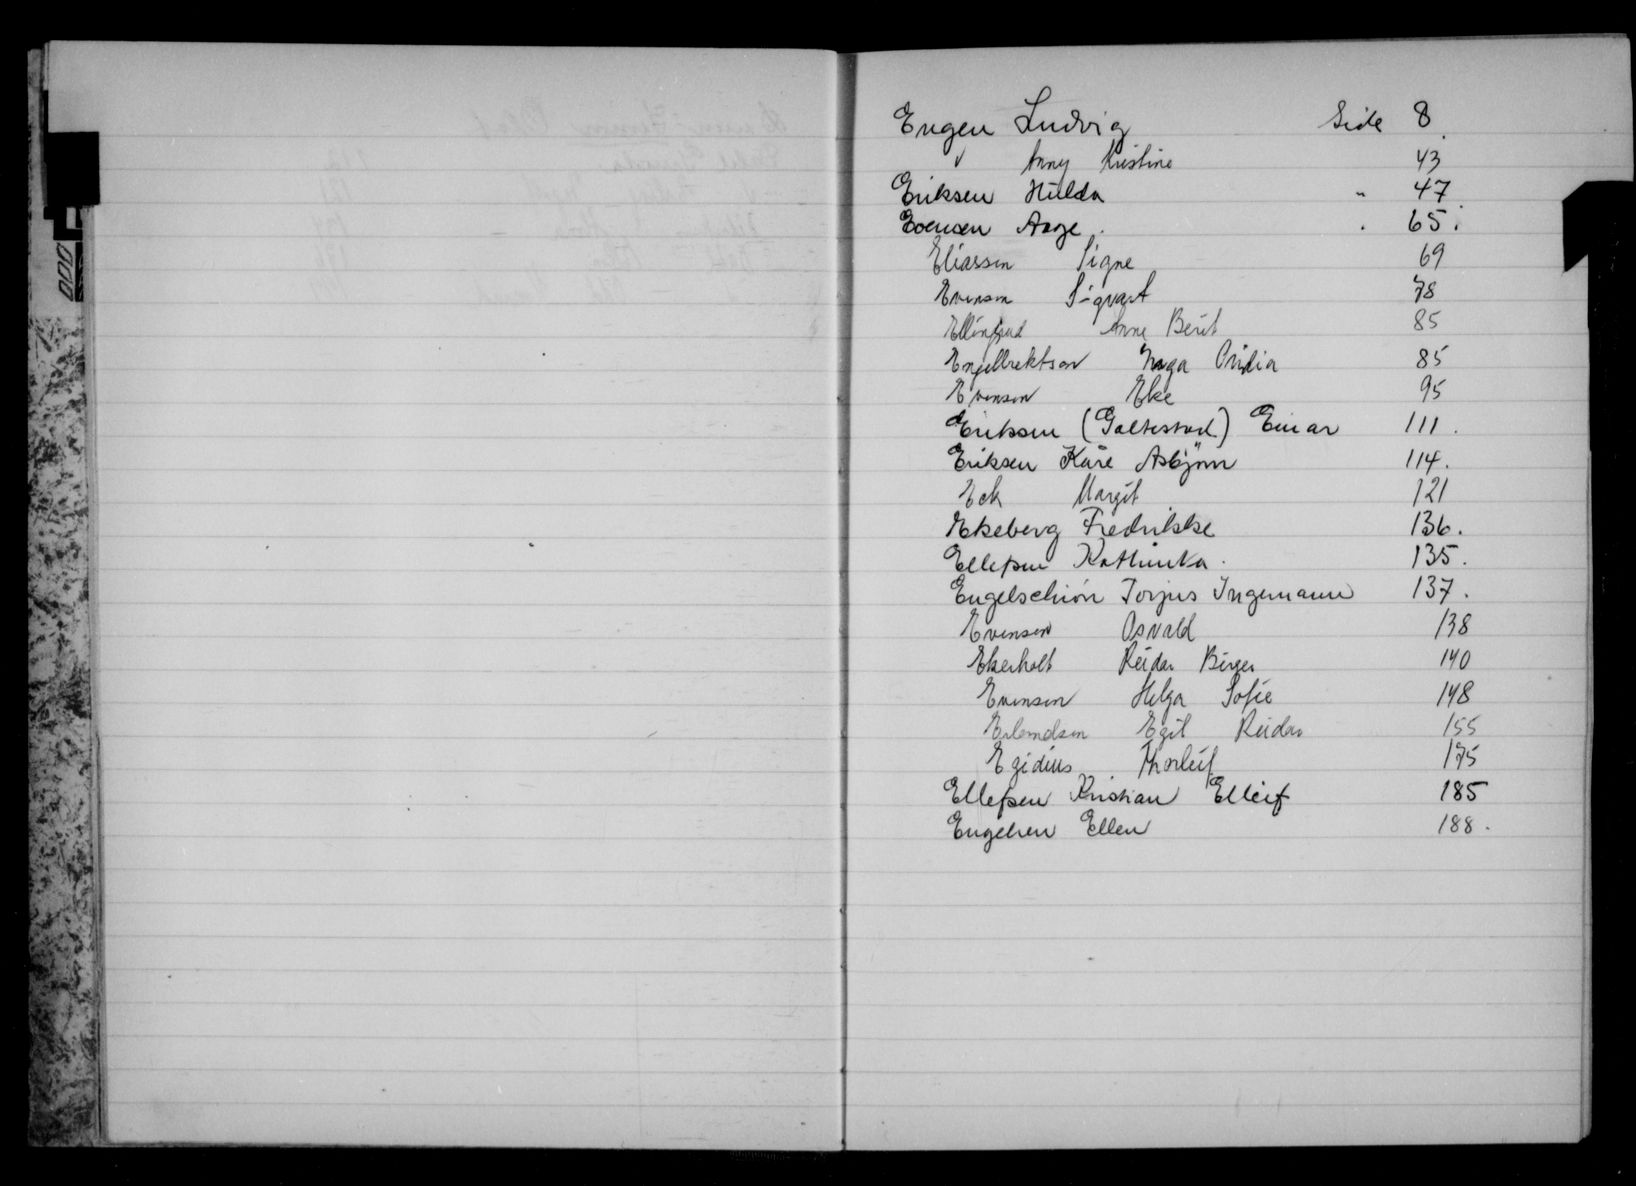 Engen Ludvig Side 8.
" Anny Kristine 43
Eriksen Hulda " 47
Evensen Aage . " 65.
Eliassen Signe 69
Evensen Sigvart 78
Ellingsrud Anne Berit 85
Engelbrektson Inga Ovidia 85
Evensen Eke 95
Eriksen (Galtestad) Einar 111.
Eriksen Kåre Asbjørn 114.
Eck Margit 121
Ekeberg Fredrikke 136.
Ellefsen Kathinka . 135.
Engelschiøn Torjus Ingemann 137.
Evensen Osvald 138
Ekerholt Reidar Birger 140
Evensen Helga Sofie 148
Erlendsen Egil Reidar 155
Egidius Thorleif 175
Ellefsen Kristian Elleif 185
Engelsen Ellen 188.